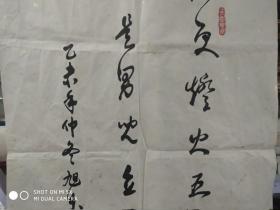 更燈火五
是男兒立
乙未年仲冬旭
SHOT ON MI
MI DUAL CAMERA